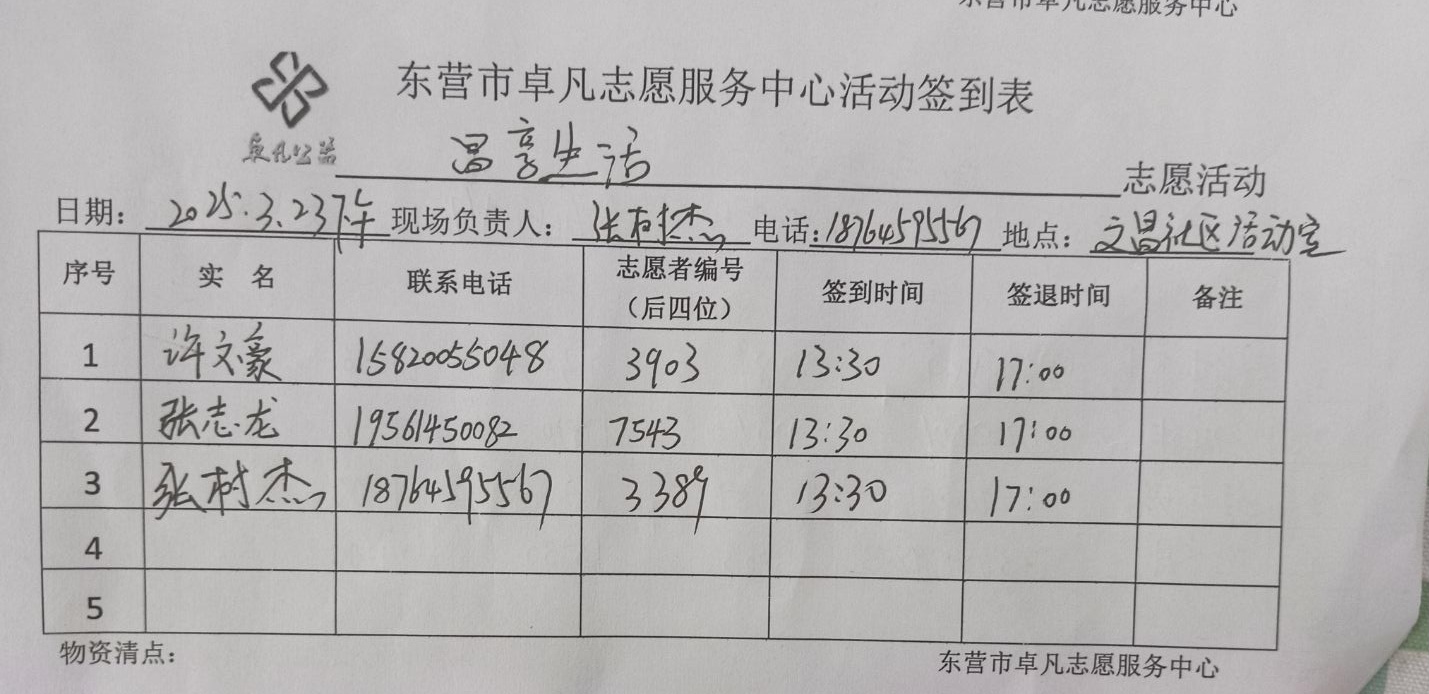 东营市卓凡志愿服务中心
东营市卓凡志愿服务中心活动签到表
卓凡公益
昌享生活 志愿活动
日期: 2025.3.23下午 现场负责人: 张树杰 电话:18764595567 地点: 文昌社区活动室
序号 实 名 联系电话 志愿者编号(后四位) 签到时间 签退时间 备注
1 许文豪 15820055048 3903 13:30 17:00
2 张志龙 19561450082 7543 13:30 17:00
3 张树杰 18764595567 3389 13:30 17:00
4
5
物资清点: 东营市卓凡志愿服务中心